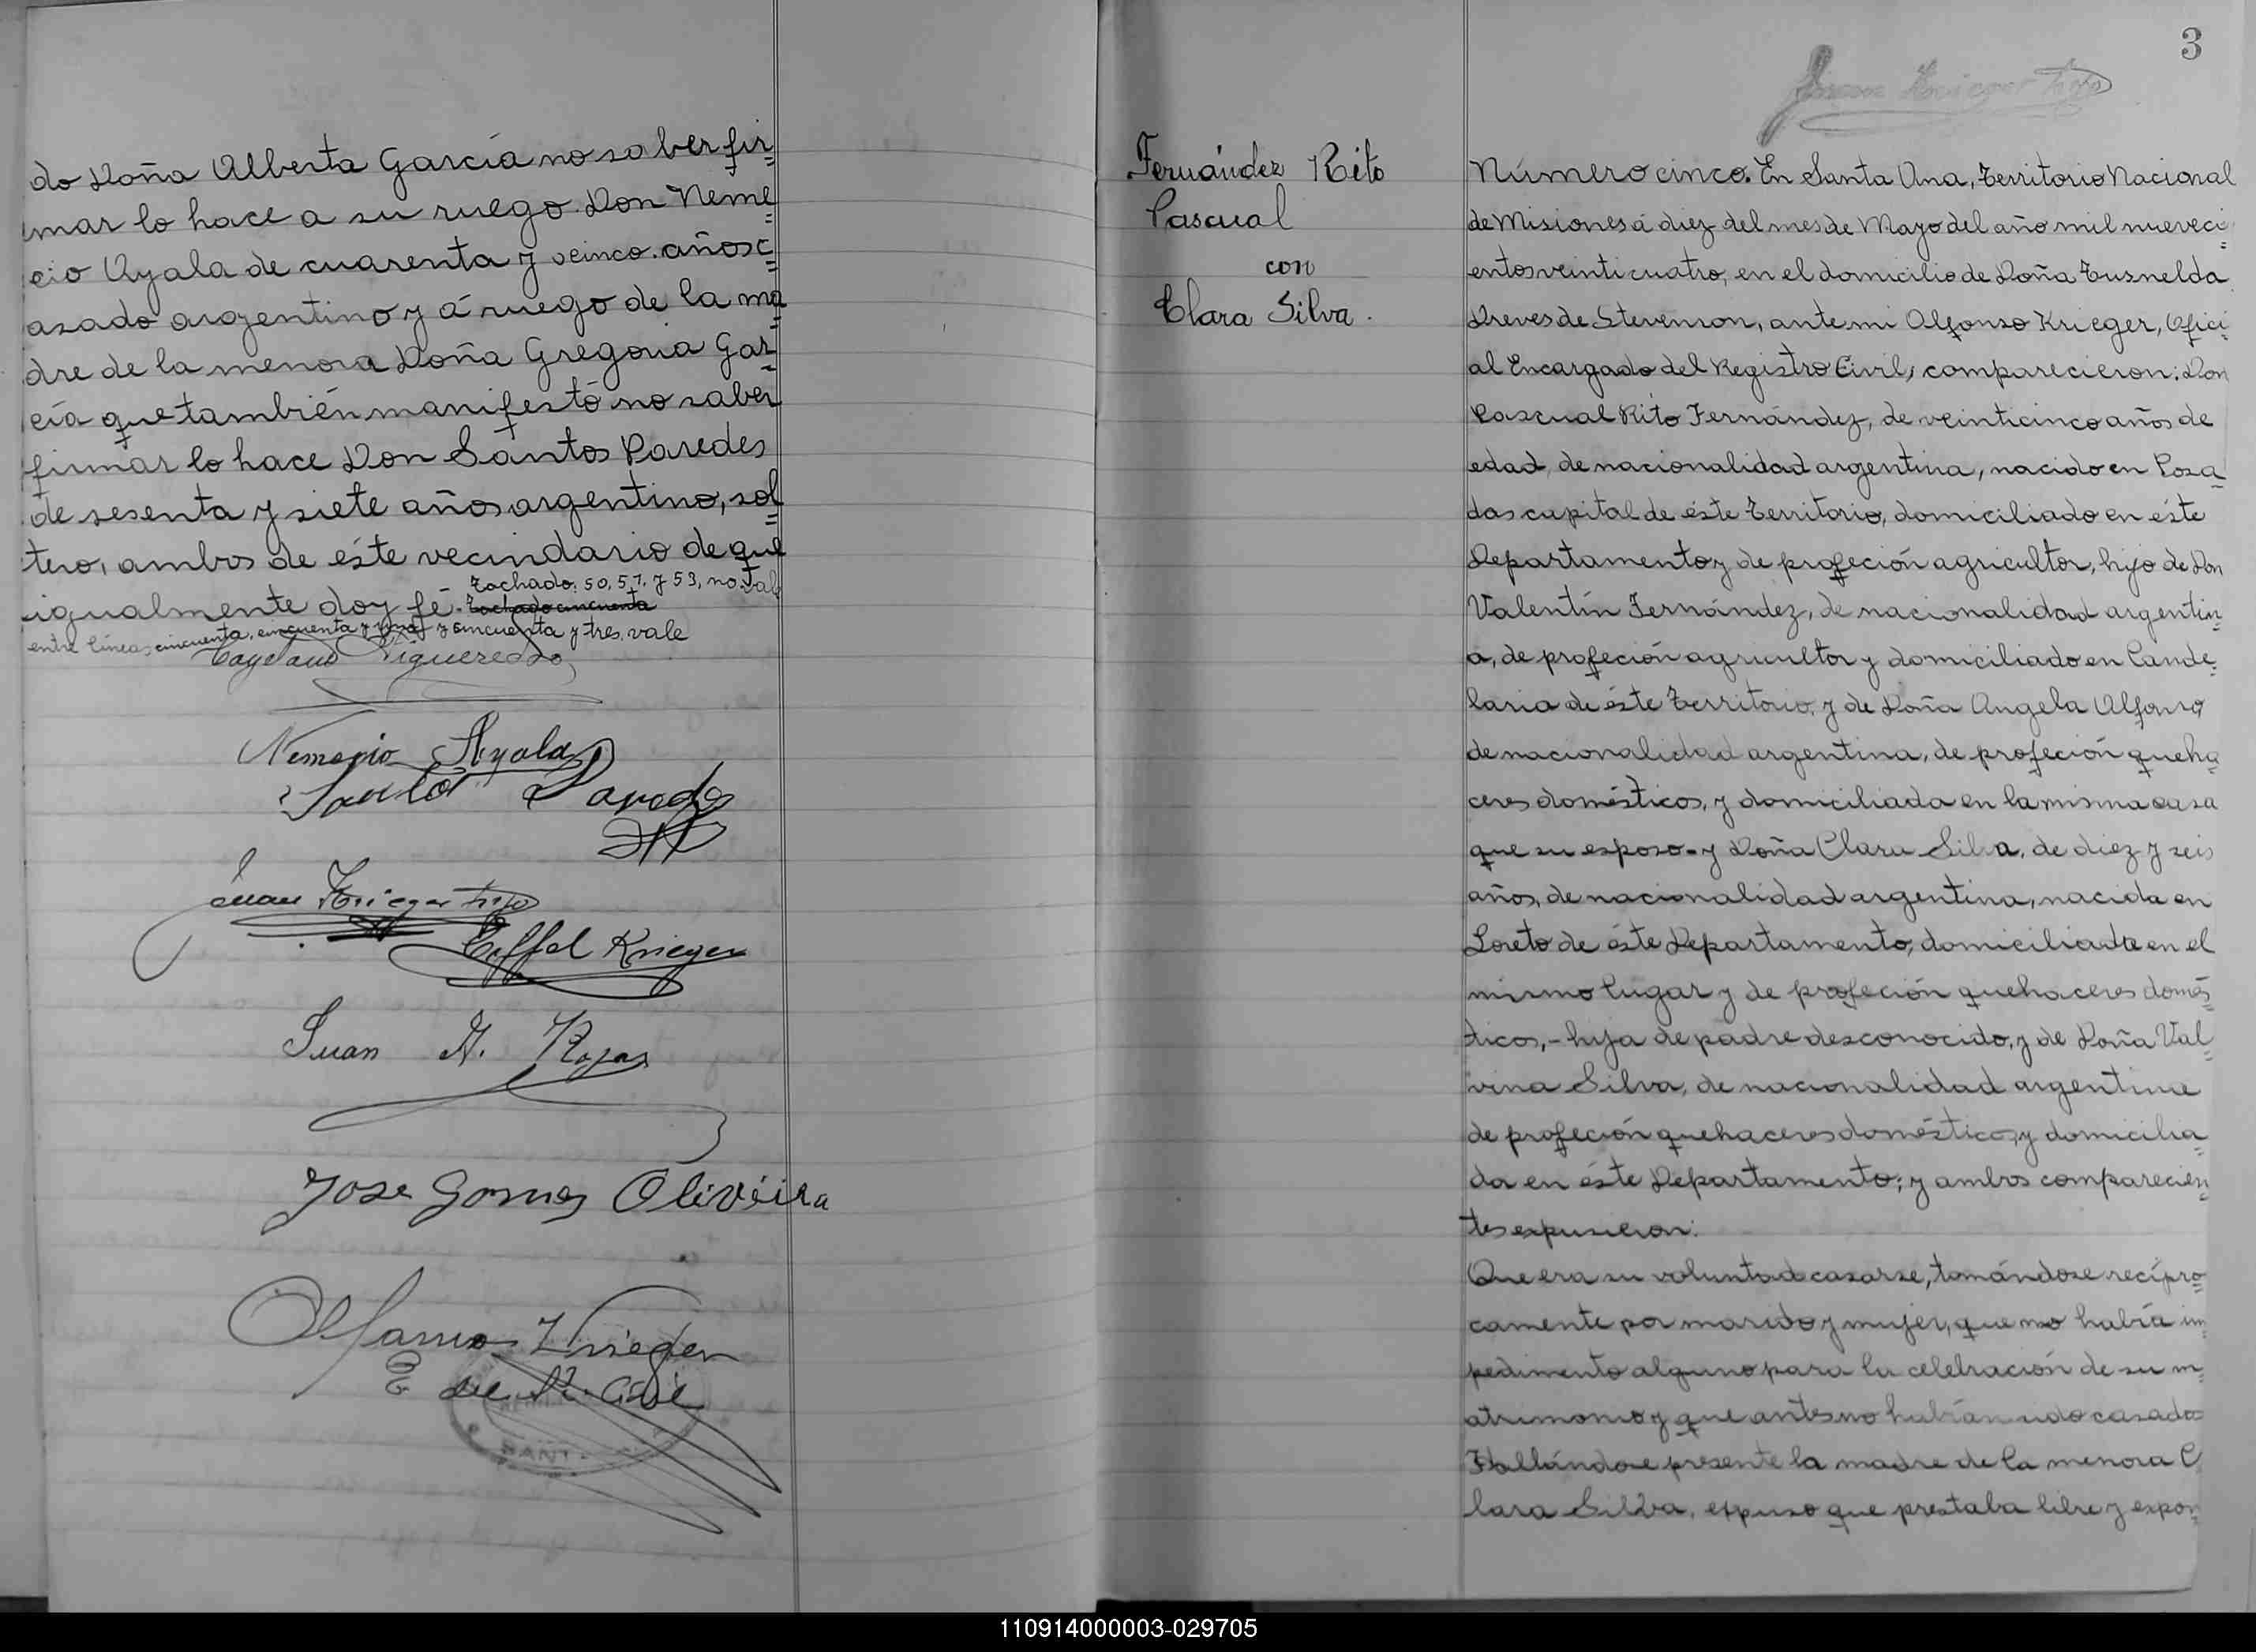 do Doña Alberta García no saber fir=
mar lo hace a su ruego Don Neme=
cio Ayala de cuarenta y cinco años c=
asado argentino y á ruego de la ma=
dre de la menora Doña Gregoria Gar=
cía que también manifestó no saber
firmar lo hace Don Santos Paredes
de sesenta y siete años argentino, sol=
tero, ambos de éste vecindario de que
igualmente doy fé. Tachado cincuenta
Tachado: 50, 51, y 53, no vale
entre líneas, cincuenta, cincuenta y uno y cincuenta y tres. vale
Cayetano Figueredo
Nemecio Ayala
Santos Paredes
Juan Krieger hijo
Eiffel Krieger
Juan A. Rojas
Jose Gomes Oliveira
Alfonso Krieger
E del R. Civil
SANT
3
Juan Krieger hijo
Fernández Rito
Pascual
con
Clara Silva.
Número cinco. En Santa Ana, Territorio Nacional
de Misiones á diez del mes de Mayo del año mil nueveci=
entos veinticuatro, en el domicilio de Doña Tusnelda
Dreves de Stevenson, ante mi Alfonso Krieger, Ofici=
al Encargado del Registro Civil, comparecieron: Don
Pascual Rito Fernández, de veinticinco años de
edad, de nacionalidad argentina, nacido en Posa=
das capital de éste Territorio, domiciliado en éste
Departamento y de profeción agricultor, hijo de Don
Valentín Fernández, de nacionalidad argentin=
a, de profeción agricultor y domiciliado en Cande=
laria de éste Territorio, y de Doña Angela Alfonso,
de nacionalidad argentina, de profeción queha=
ceres domésticos, y domiciliada en la misma casa
que su esposo = y Doña Clara Silva, de diez y seis
años, de nacionalidad argentina, nacida en
Loreto de éste Departamento, domiciliada en el
mismo lugar y de profeción quehaceres domés=
ticos, - hija de padre desconocido, y de Doña Val=
vina Silva, de nacionalidad argentina
de profeción quehaceres domésticos, y domicilia=
da en éste Departamento; y ambos comparecien=
tes expusieron:
Que era su voluntad casarse, tomándose recípro=
camente por marido y mujer, que no había im=
pedimento alguno para la celebración de su m=
atrimonio y que antes no habían sido casados
Hallándose presente la madre de la menora C
lara Silva, expuso que prestaba libre y expon=
110914000003-029705